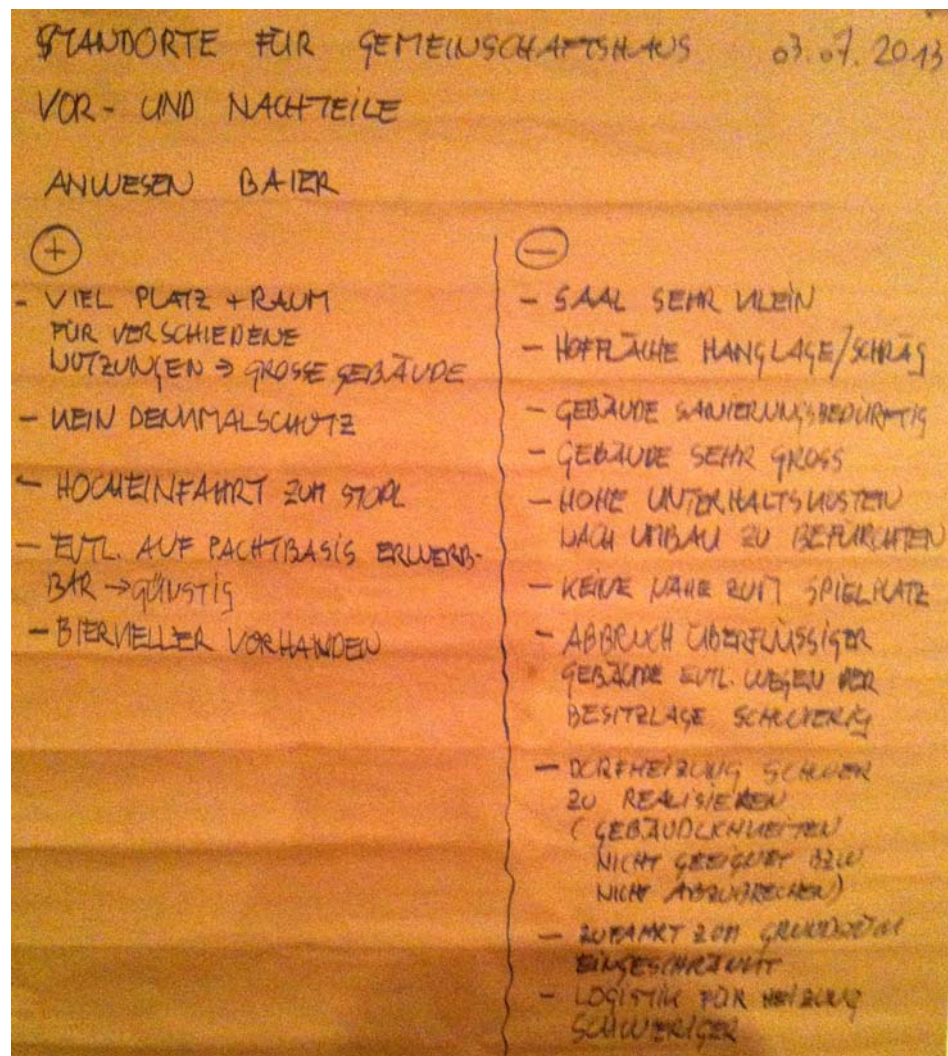 STANDORTE FÜR GEMEINSCHAFTSHAUS 03.07.2013
VOR- UND NACHTEILE
ANWESEN BAIER
+
- VIEL PLATZ + RAUM
FÜR VERSCHIEDENE
NUTZUNGEN → GROSSE GEBÄUDE
- KEIN DENKMALSCHUTZ
- HOCHEINFAHRT ZUM STODL
- EVTL. AUF PACHTBASIS ERWERB-
BAR → GÜNSTIG
- BIERKELLER VORHANDEN
-
- SAAL SEHR KLEIN
- HOFFLÄCHE HANGLAGE/SCHRÄG
- GEBÄUDE SANIERUNGSBEDÜRFTIG
- GEBÄUDE SEHR GROSS
- HOHE UNTERHALTSKOSTEN
NACH UMBAU ZU BEFÜRCHTEN
- KEINE NÄHE ZUM SPIELPLATZ
- ABBRUCH ÜBERFLÜSSIGER
GEBÄUDE EVTL. WEGEN DER
BESITZLAGE SCHWIERIG
- DORFHEIZUNG SCHWER
ZU REALISIEREN
(GEBÄUDLICHKEITEN
NICHT GEEIGNET BZW
NICHT ABZUBRECHEN)
- ZUFAHRT ZUM GRUNDSTÜCK
EINGESCHRÄNKT
- LOGISTIK FÜR HEIZUNG
SCHWIERIGER